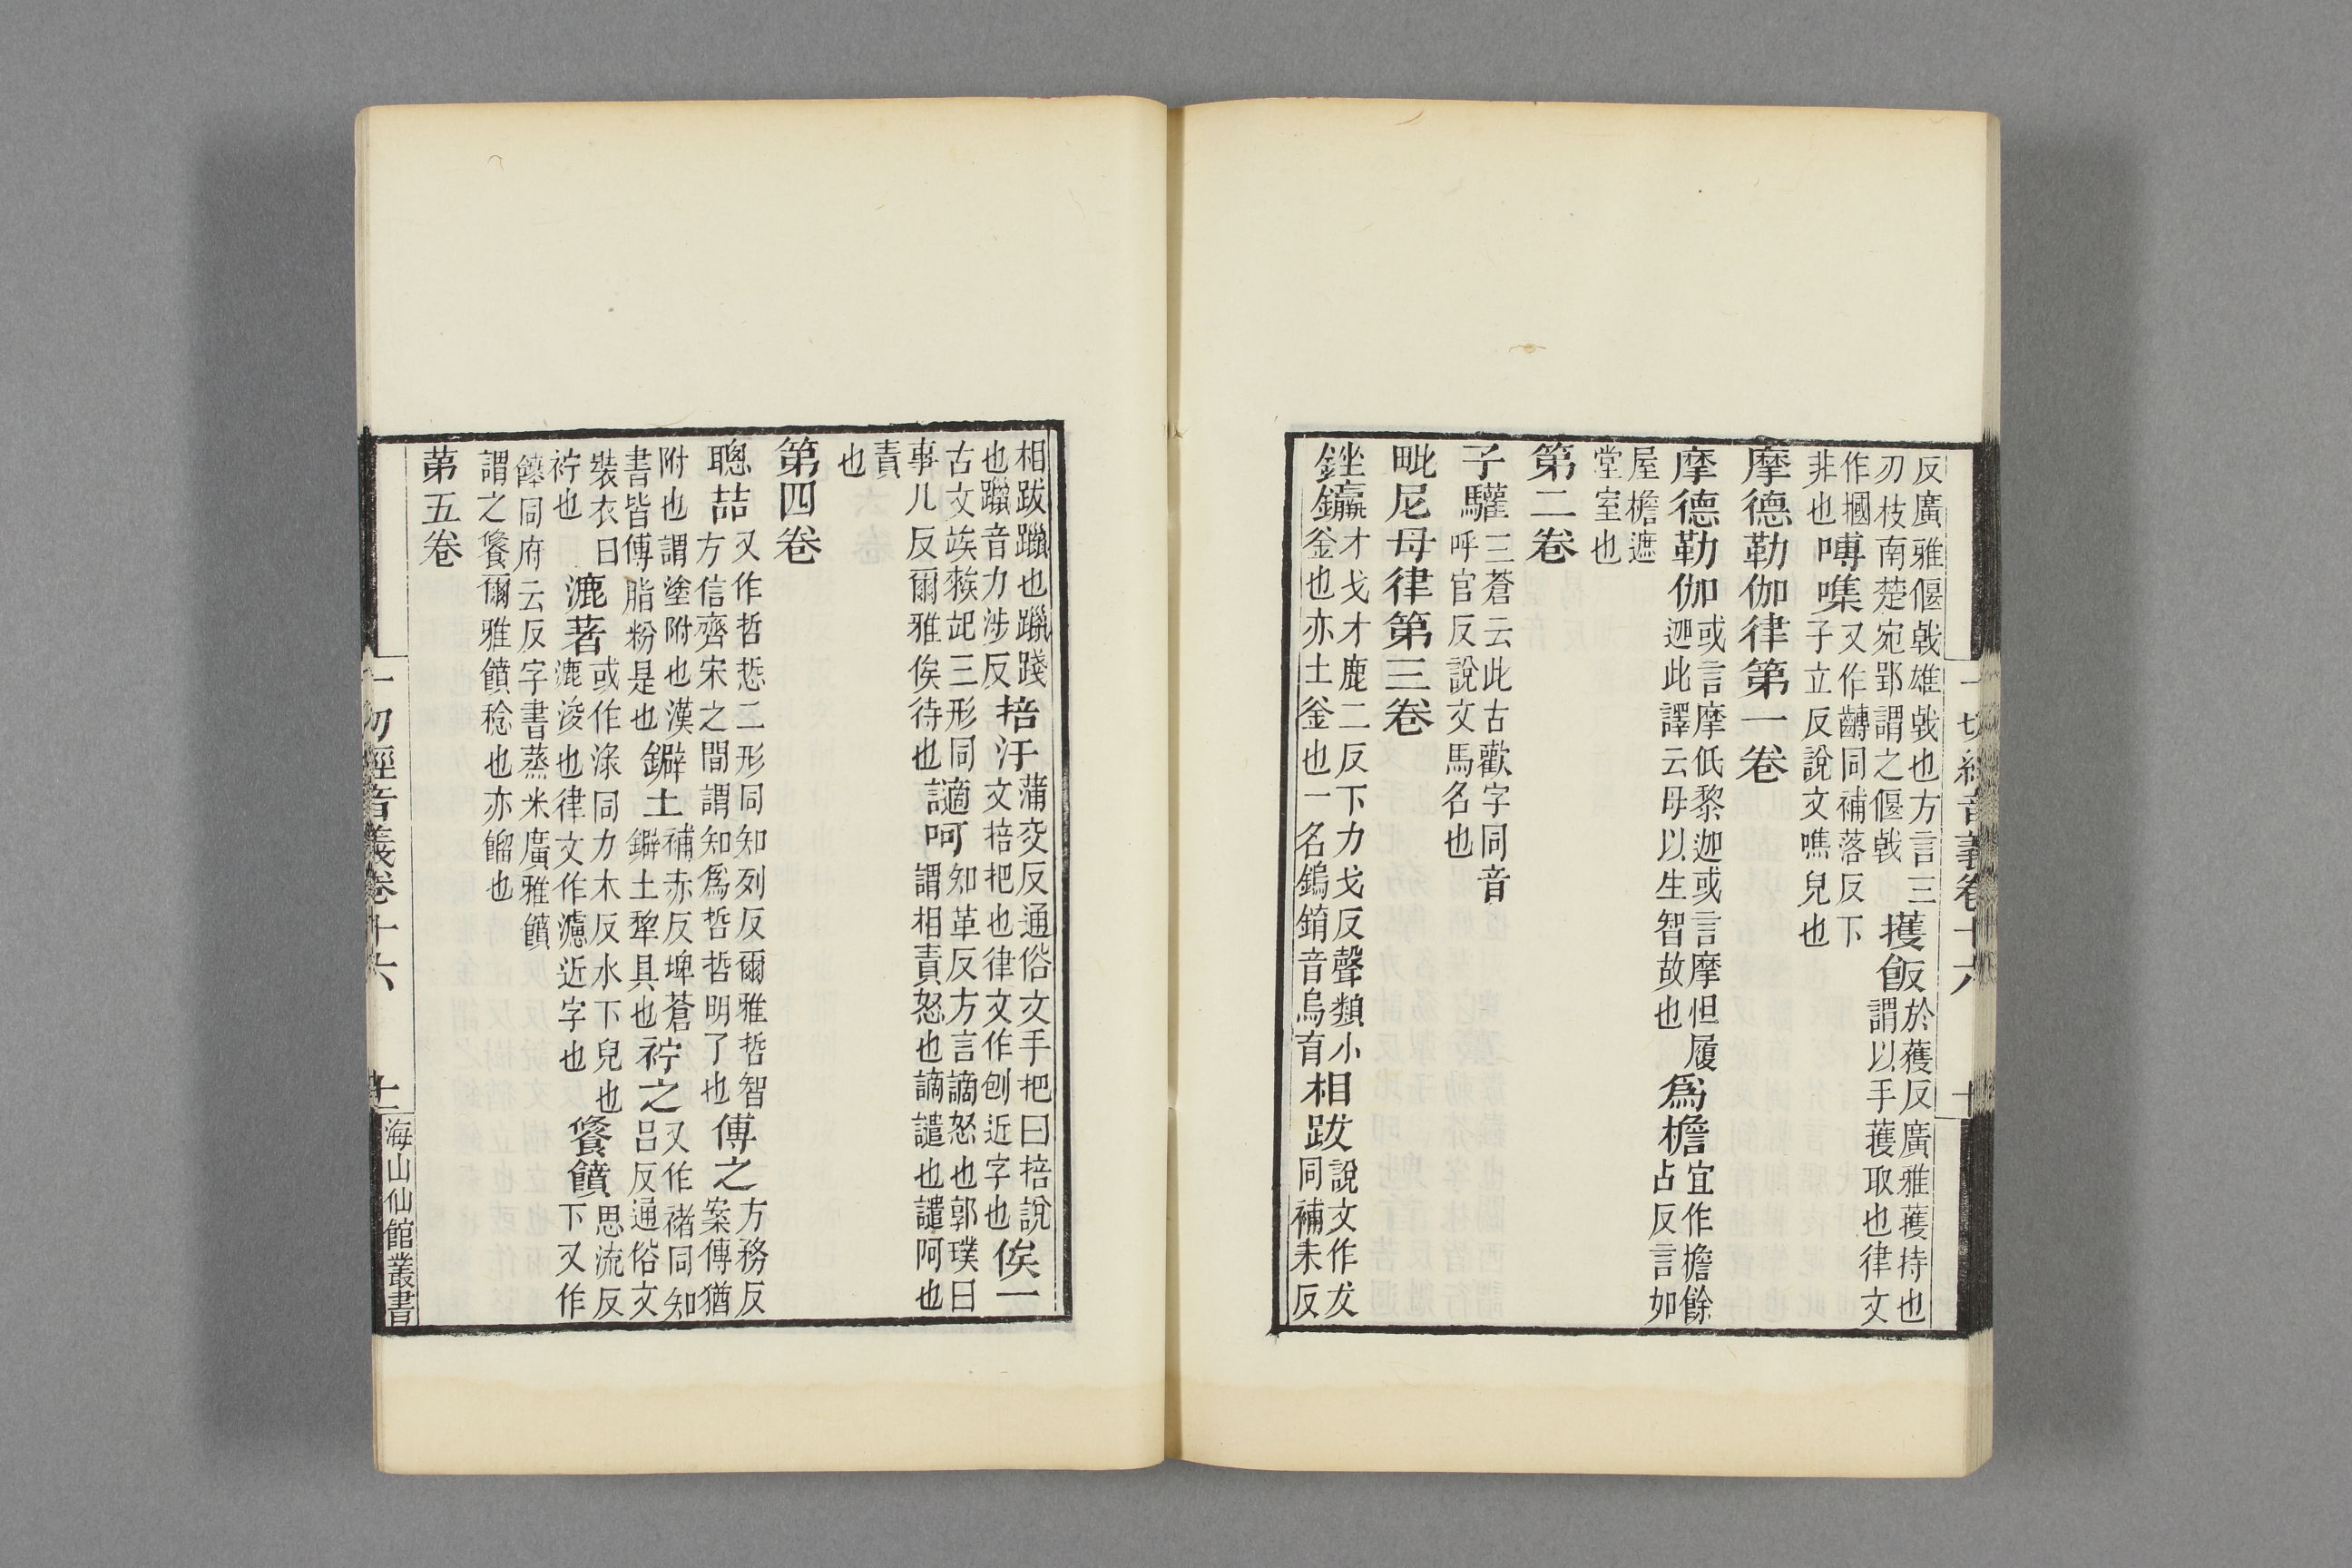 一切經音義卷十六
十
反廣雅偃戟雄戟也方言三
刃枝南楚宛郢謂之偃戟
擭飯
於擭反廣雅擭持也
謂以手擭取也律文
作摑
非也
嗶噍
又作齳同補落反下
子立反說文噍皃也
摩德勒伽律第一卷
摩德勒伽
或言摩低黎迦或言摩怛履
迦此譯云母以生智故也
爲檐
宜作檐餘
占反言如
屋檐遮
堂室也
第二卷
子驩
三蒼云此古歡字同音
呼官反說文馬名也
毗尼母律第三卷
銼鑹
才戈才鹿二反下力戈反聲類小
釜也亦土釜也一名鎢錥音烏育
相跋
說文作犮
同補末反
相跋躐也躐踐
也躐音力涉反
掊汙
蒲交反通俗文手把曰掊說
文掊把也律文作刨近字也
俟一
古文竢䇃𨑨三形同
事几反爾雅俟待也
讁呵
知革反方言謫怒也郭璞曰
謂相責怒也謫譴也譴呵也
責
也
第四卷
聰喆
又作哲悊二形同知列反爾雅哲智
方信齊宋之間謂知爲哲哲明了也
傅之
方務反
案傅猶
附也謂塗附也漢
書皆傅脂粉是也
鐴土
補赤反埤蒼
鐴土犂具也
䘢之
又作褚同知
呂反通俗文
裝衣曰
䘢也
漉著
或作淥同力木反水下皃也
漉浚也律文作濾近字也
餐饙
思流反
下又作
餴同府云反字書蒸米廣雅饙
謂之餐爾雅饙稔也亦餾也
第五卷
一切經音義卷十六
十一
海山仙館叢書